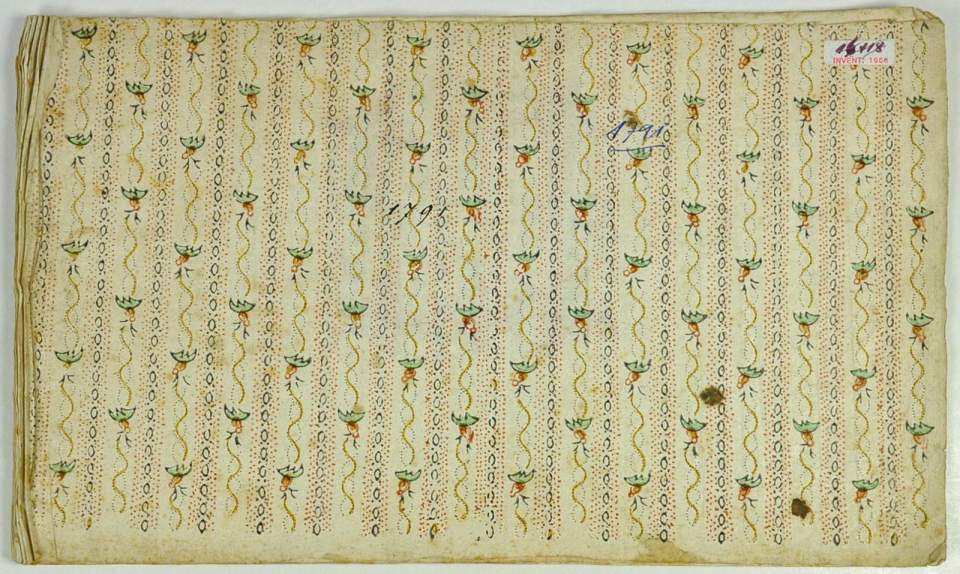 INVENT: 1966
1791
1791